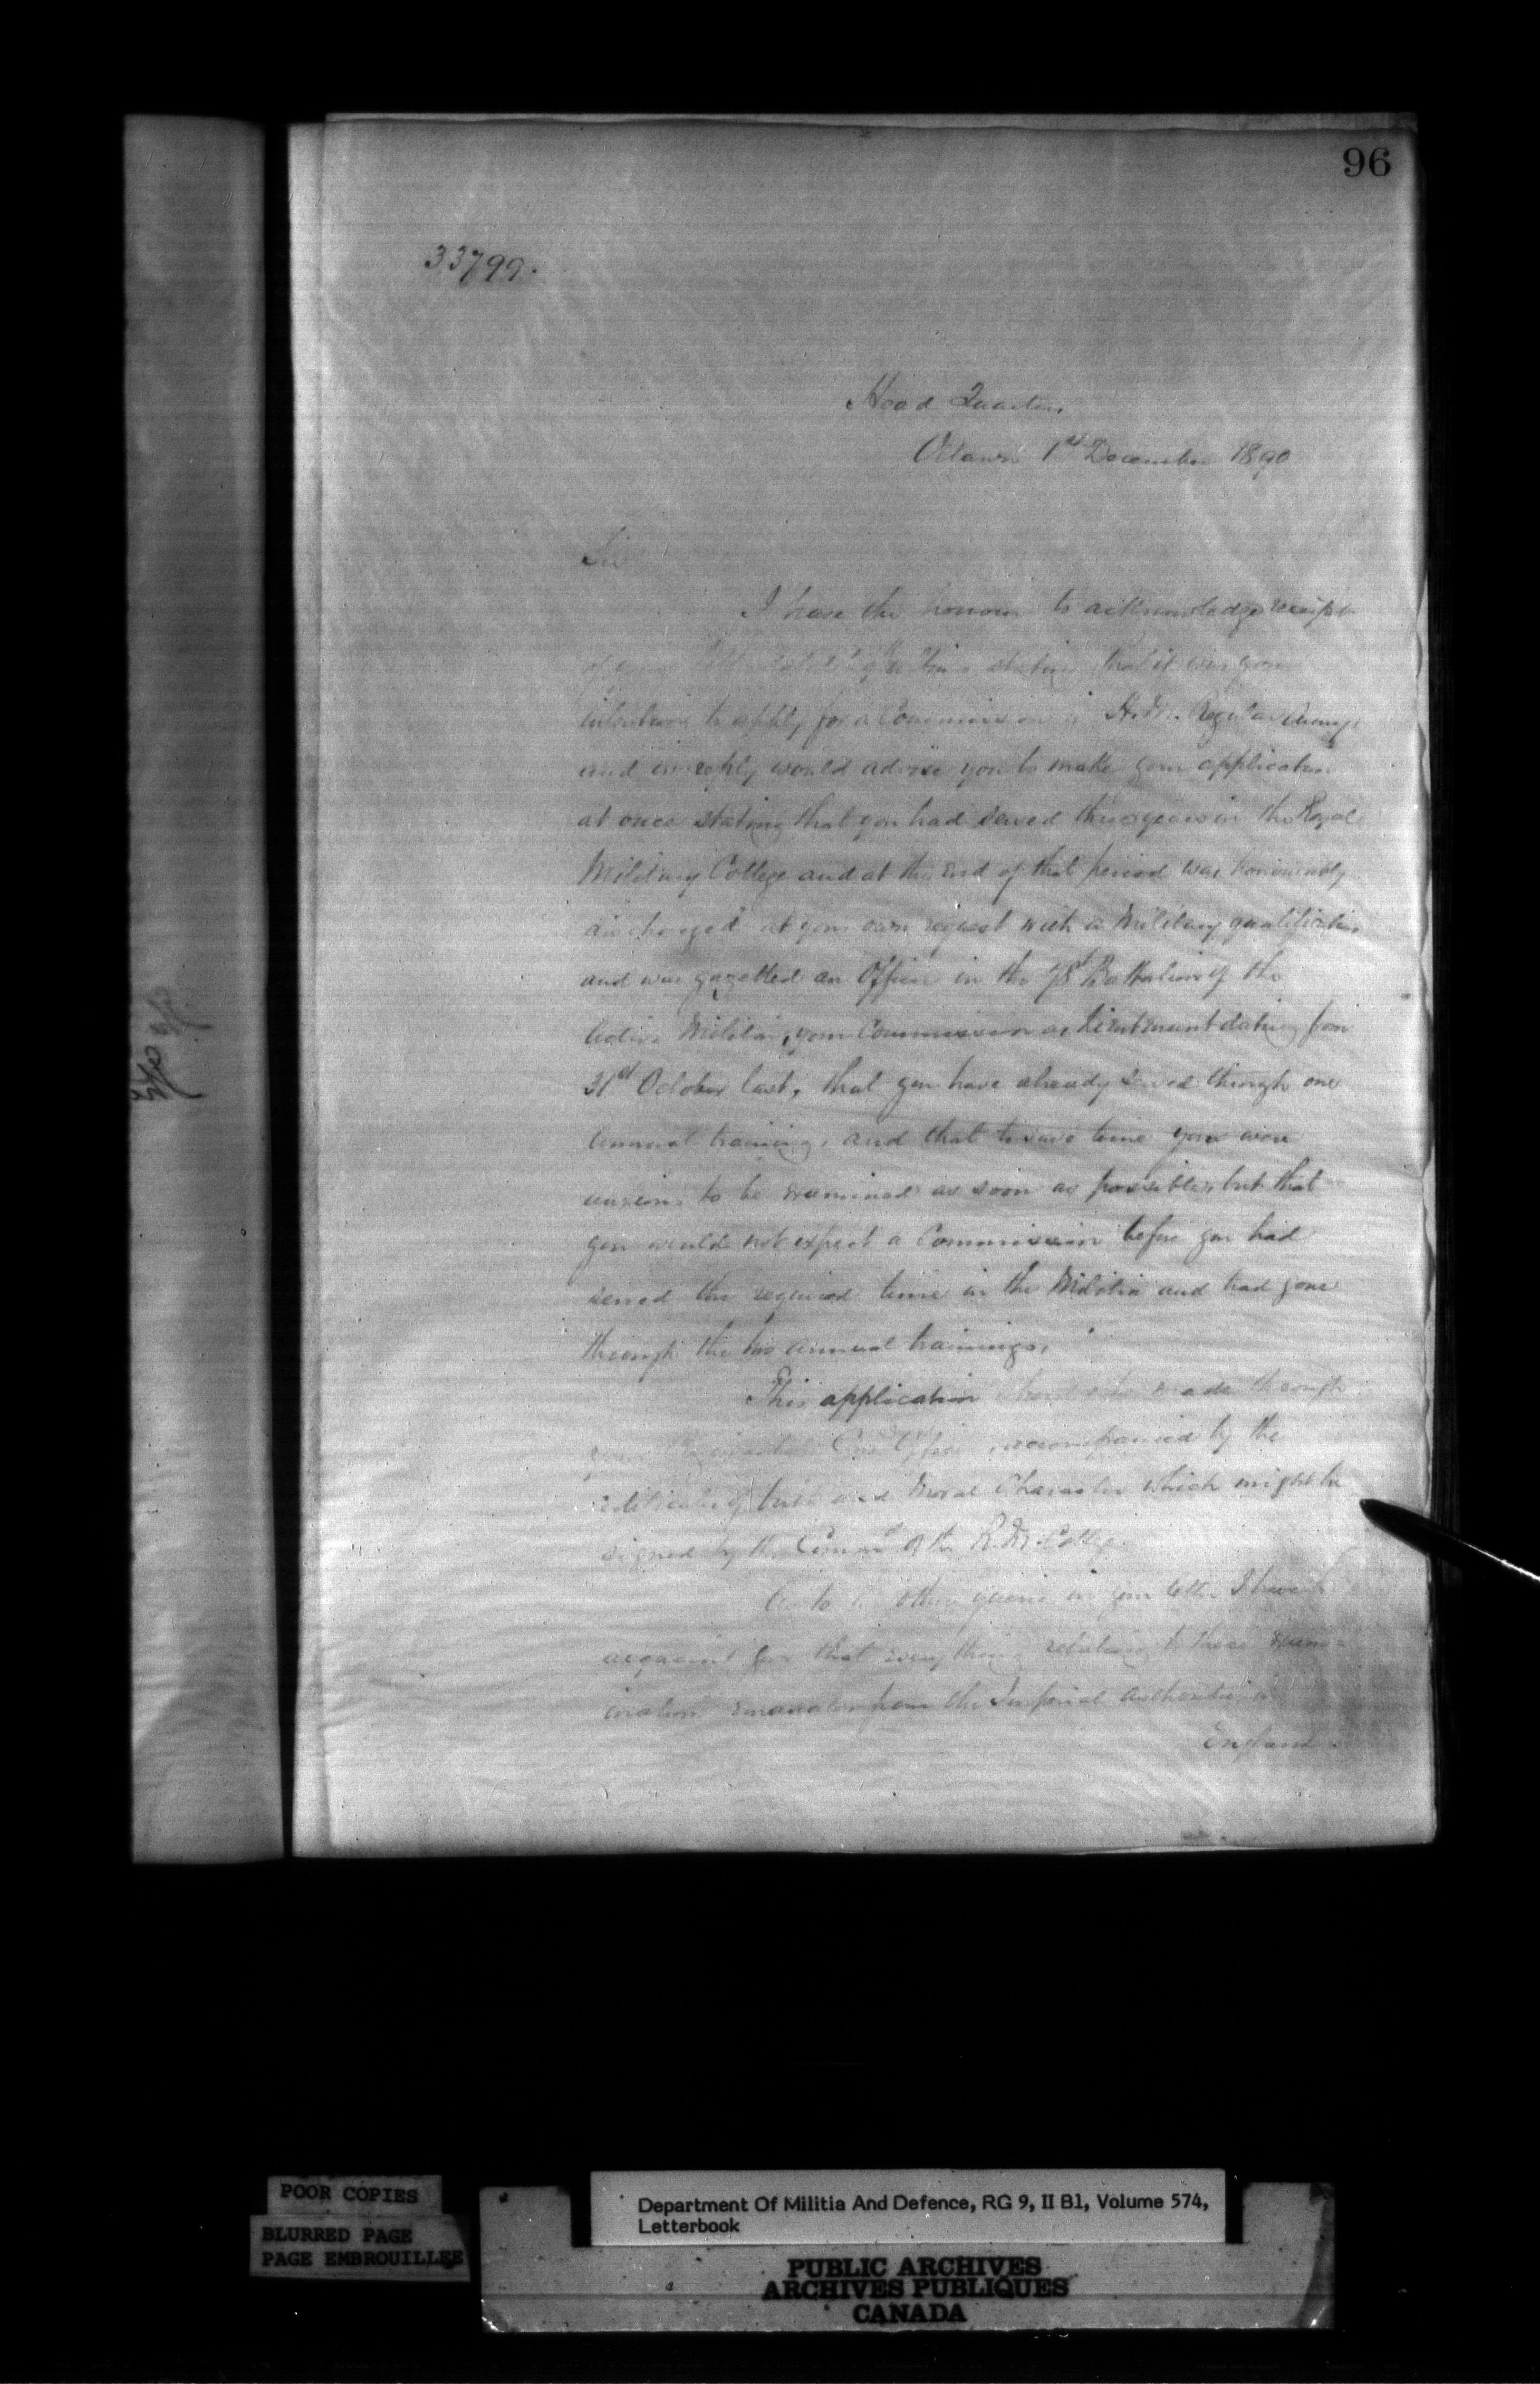 96
33799.
Head Quarters
Ottawa 1st December 1890
Sir
I have the honour to acknowledge receipt
of your stating that it was your
intention to apply for a Commission in H.M. Regular Army,
and in reply would advise you to make your application
at once stating that you had served three years in the Royal
Military College and at the end of that period was honourably
discharged at your own request with a Military qualification
and was gazetted an Officer in the 78th Battalion of the
Active Militia, your Commission as Lieutenant dating from
31st October last, that you have already served through one
annual training, and that to save time you were
anxious to be examined as soon as possible, but that
you would not expect a Commission before you had
served the required time in the Militia and had gone
through the two annual trainings.
This application should be made through
your Office, accompanied by the
certificates of birth and Moral Character which might be
signed by the Comm't of the R.M. College.
As to the other queries in your letter I have to
acquaint you that everything relating to these exam-
ination emanates from the Imperial authorities in
England.
POOR COPIES
BLURRED PAGE
PAGE EMBROUILLEE
Department Of Militia And Defence, RG 9, II B1, Volume 574,
Letterbook
PUBLIC ARCHIVES
ARCHIVES PUBLIQUES
CANADA